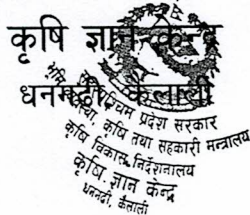 कृषि ज्ञान केन्द्र
धनगढी, कैलाली
सुदूरपश्चिम प्रदेश सरकार
व्यवस्था, कृषि तथा सहकारी मन्त्रालय
कृषि विकास निर्देशनालय
कृषि ज्ञान केन्द्र
धनगढी, कैलाली